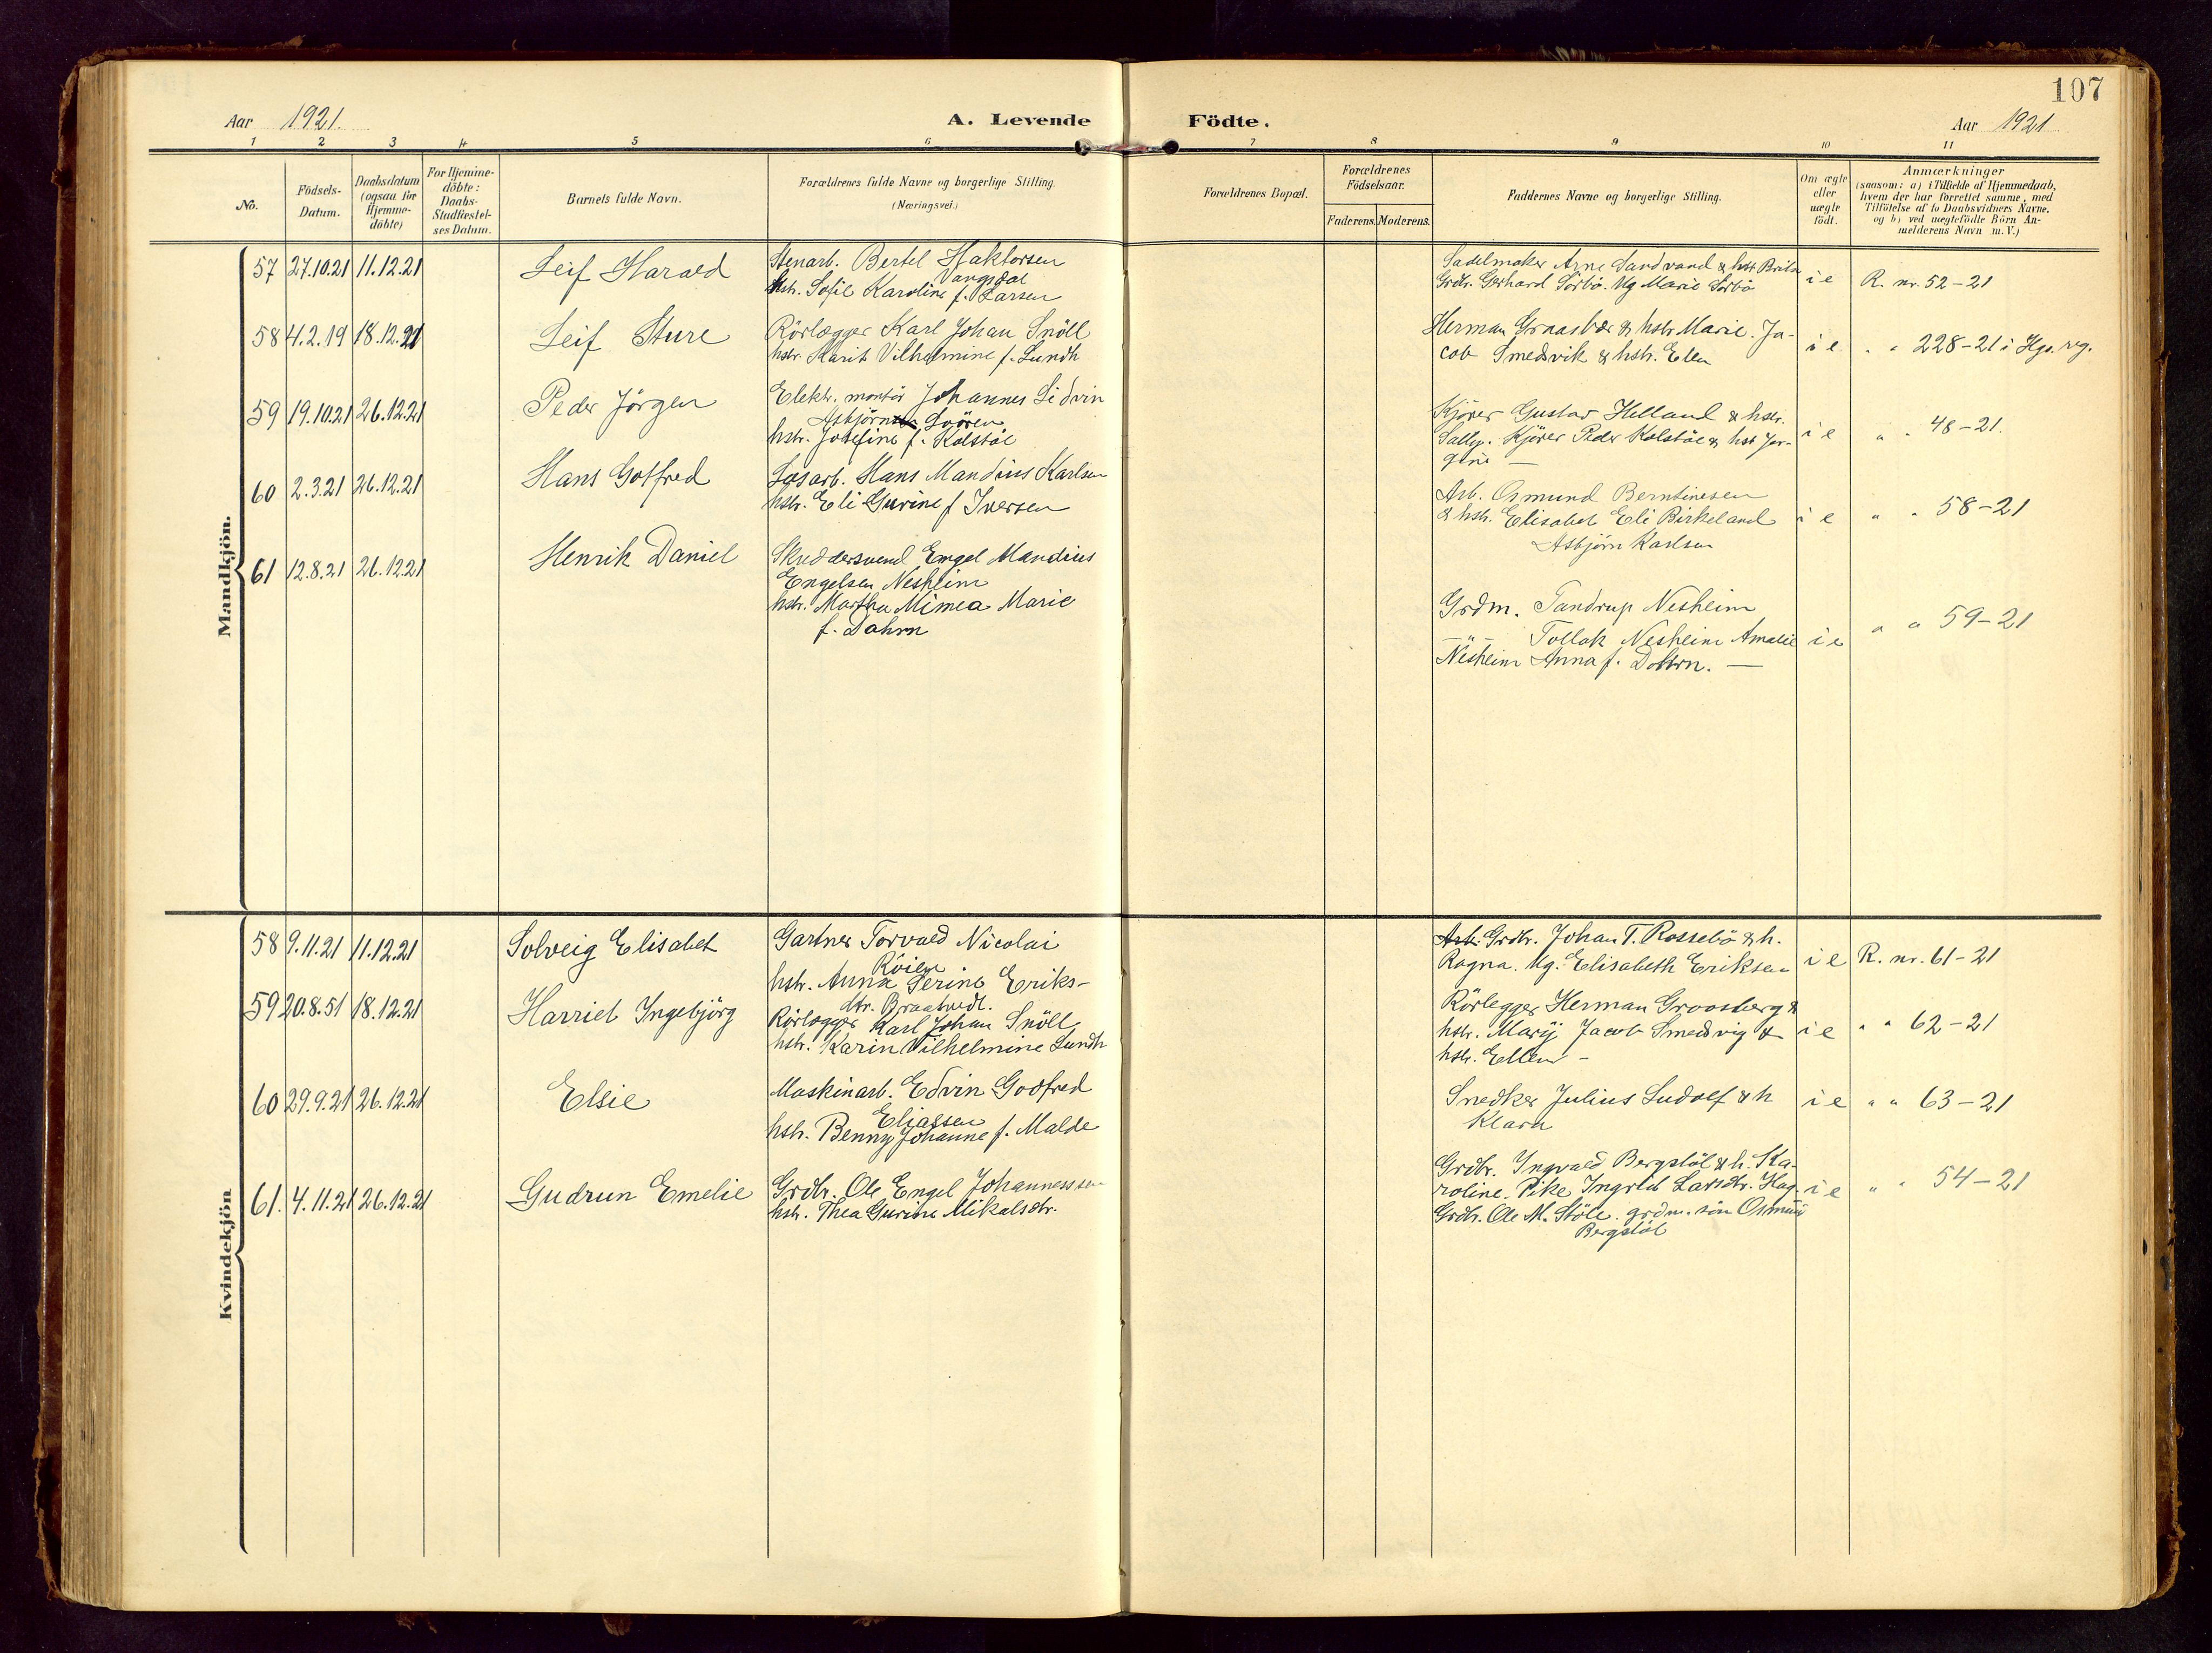 107
Aar 1921.
A. Levende Födte.
Aar 1921
1 2 3 4 5 6 7 8 9 10 11
No.
Födsels-
Datum.
Daabsdatum
(ogsaa for
Hjemme-
döbte)
For Hjemme-
döbte:
Daabs-
Stadfæstel-
ses Datum.
Barnets fulde Navn.
Forældrenes fulde Navne og borgerlige Stilling.
(Næringsvei.)
Forældrenes Bopæl.
Forældrenes
Födselsaar.
Faderens. Moderens.
Faddernes Navne og borgerlige Stilling.
Om ægte
eller
uægte
födt.
Anmærkninger
(saasom: a) i Tilfælde af Hjemmedaab,
hvem der har forrettet samme, med
Tilföielse af to Daabsvidners Navne.
og b) ved uægtefödte Börn An-
melderens Navn m. V.)
Mandkjön.
57 27.10.21 11.12.21 Leif Harald
Stenarb. Bertel Haktorsen
Vangsdal
hstr. Sofie Karoline f. Larsen
Sadelmaker Arne Sandvand & hstr Brita
Grdbr. Gerhard Sörbö. Ug Marie Sörbö
i e R. nr. 52-21
58 4.2.19 18.12.21 Leif Sture
Rörlægger Karl Johan Snöll
hstr. Karin Vilhelmine f. Lundh
Herman Graasber & hstr Marie. Ja-
cob Smedsvik & hstr. Elen
i e " " 228-21 i Hgs. reg.
59 19.10.21 26.12.21 Peder Jörgen
Elektr. montör Johannes Lidvin
Asbjörn
hstr. Josefine f. Kolstöe
Kjörer Gustav Helland & hstr.
Kjörer Peder Kolstöe & hstr Jör-
gine —
i e " " 48-21.
60 2.3.21 26.12.21 Hans Gotfred
Løsarb. Hans Mandius Karlsen
hstr. Eli Gurine f Iversen
Arb. Osmund Berntinesen
& hstr. Elisabet Eli Birkeland
Asbjörn Karlsen
i e " " 58-21
61 12.8.21 26.12.21 Henrik Daniel
Skreddersvend Engel Mandius
Engelsen Nesheim
hstr. Martha Mimea Marie
f. Dahm
Grdm. Tandrup Nesheim
—"— Tollak Nesheim Amalie
Nesheim Anna f.
i e " " 59-21
Kvindekjön
58 9.11.21 11.12.21 Solveig Elisabet
Gartner Torvald Nicolai
Röien
hstr. Anna Serine Eriks-
dtr. Braatvedt.
Grdbr. Johan T. Rossebö & h.
Ragna. Ug. Elisabeth Eriksen
i e R. nr. 61-21
59 20.8.51 18.12.21 Harriet Ingebjörg
Rörlægger Karl Johan Snöll
hstr. Karin Vilhelmine Lundh
Rörlegger Herman Groosberg &
hstr. Marij Jacob Smedsvig &
hstr. Ellen -
i e " " 62-21
60 29.9.21 26.12.21 Elsie
Maskinarb. Edvin Godfred
Eliassen
hstr. Benny Johanne f. Malde
Snedker Julius Ludolf & h
Klara
i e " " 63-21
61. 4.11.21 26.12.21 Gudrun Emelie
Grdbr. Ole Engel Johannessen
hstr. Thea Gurine Mikalsdtr.
Grdbr. Ingvald Bergstöl & h. Ka-
roline. Pike Ingrid Larsdtr. Hag.
Grdbr. Ole M. Stöle. grdm. sön Osmund
Bergstöl
i e " " 54-21